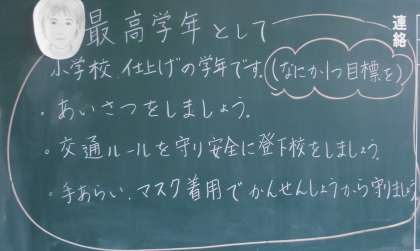 連絡
最高学年として
小学校、仕上げの学年です。(なにか1つ目標を)
・あいさつをしましょう。
・交通ルールを守り安全に登下校をしましょう。
・手あらい、マスク着用でかんせんしょうから守りましょう